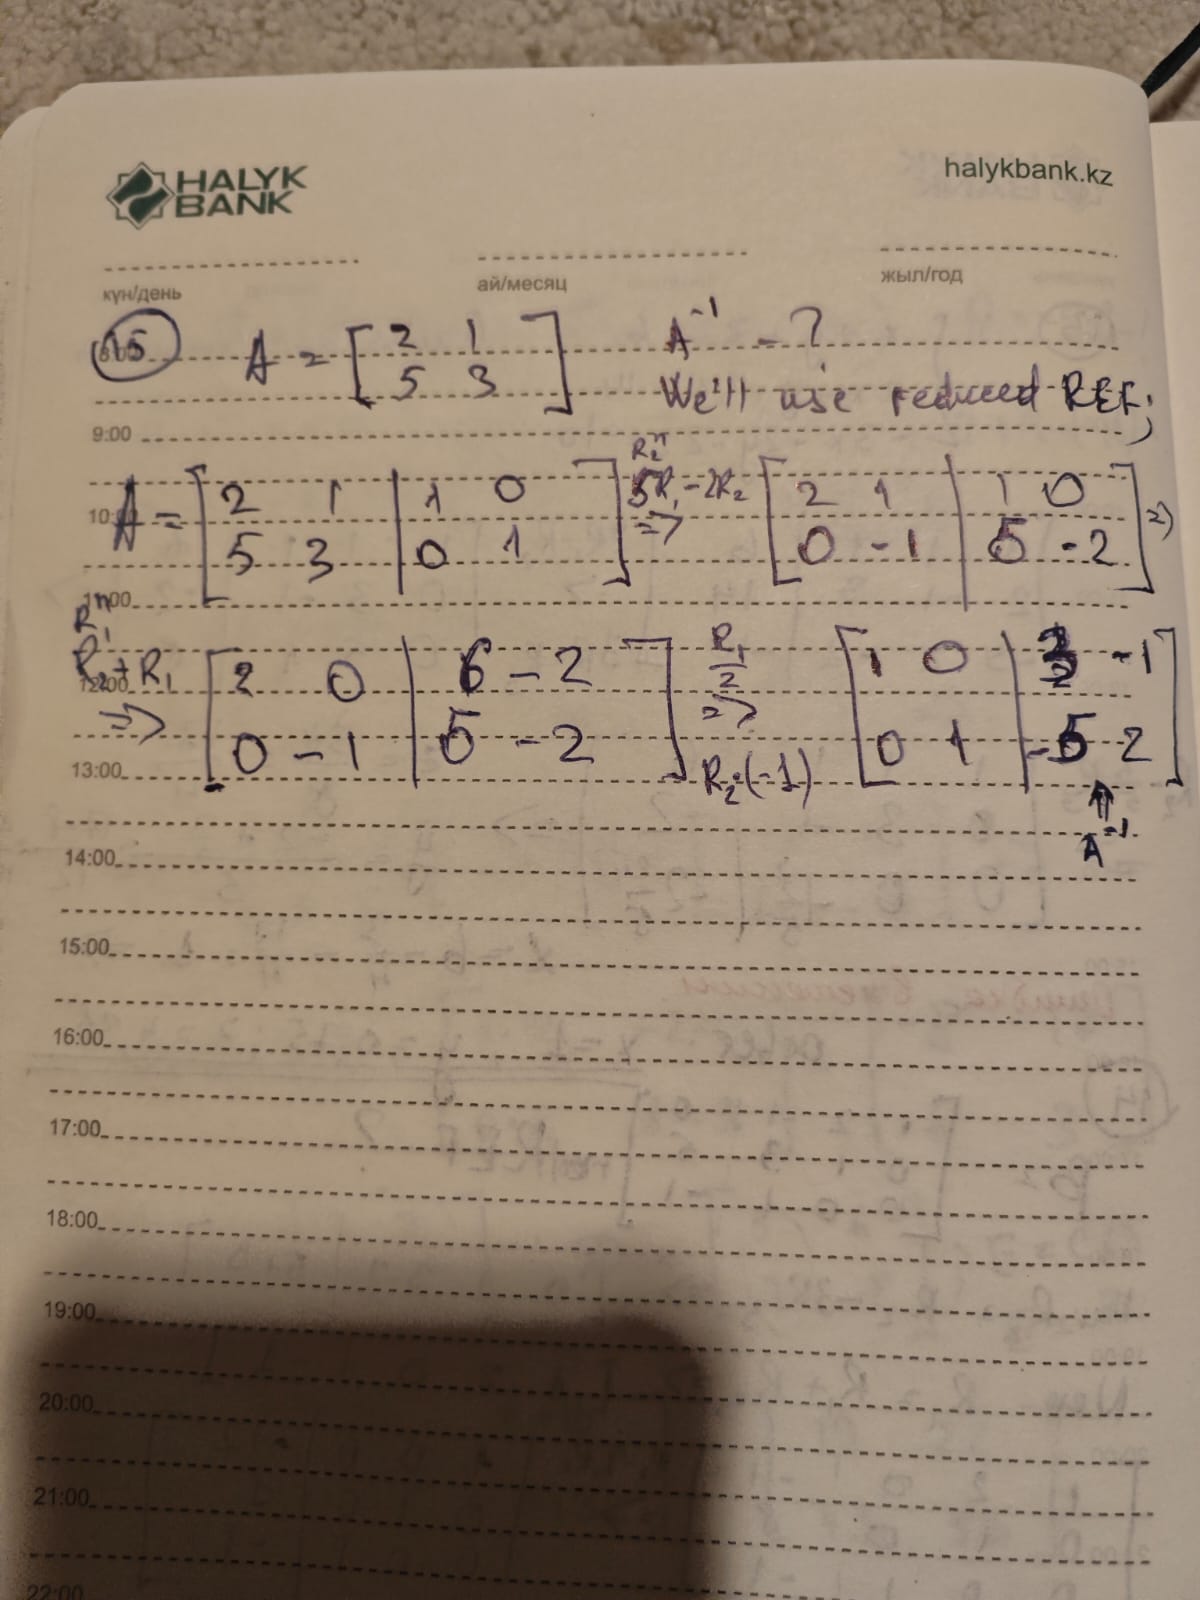 HALYK BANK
halykbank.kz
күн/день ай/месяц жыл/год
8:00 (15) A = [ 2 1 A^-1 - ?
5 3 ] We'll use reduced REF;
9:00
R2^n
A = [ 2 1 | 1 0 ] 5R1-2R2 [ 2 1 | 1 0 ]
10:00 [ 5 3 | 0 1 ] => [ 0 -1 | 5 -2 ] =>
11:00
R1^n
R2+R1 [ 2 0 | 6 -2 ] R1/2 [ 1 0 | -1 ]
12:00 => =>
[ 0 -1 | 5 -2 ] R2·(-1) [ 0 1 | -5 2 ]
13:00
⇑
A^-1
14:00
15:00
16:00
17:00
18:00
19:00
20:00
21:00
22:00